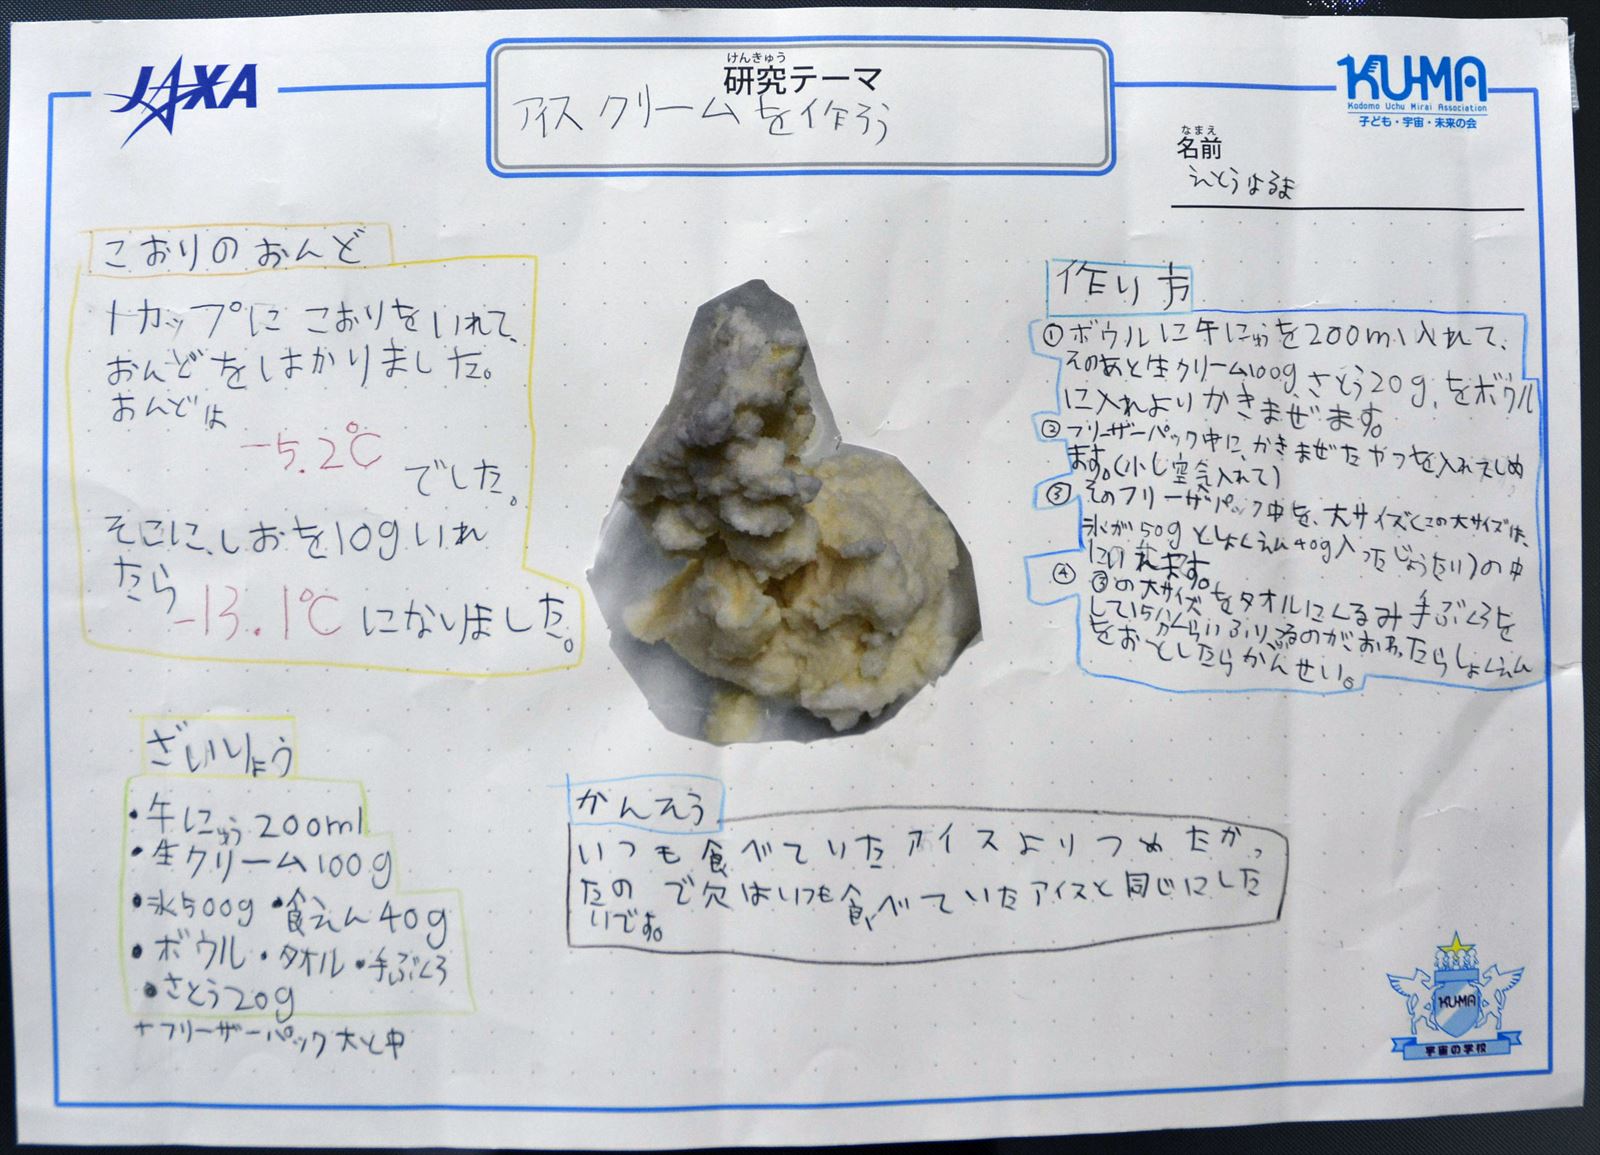 JAXA
けんきゅう
研究テーマ
アイスクリームを作ろう
KUMA
Kodomo Uchu Mirai Association
子ども・宇宙・未来の会
なまえ
名前
えとうはるま
こおりのおんど
1カップにこおりをいれて、
おんどをはかりました。
おんどは
-5.2℃
でした。
そこに、しおを10gいれ
たら
-13.1℃になりました。
作り方
①ボウルに牛にゅうを200ml入れて、
そのあと生クリーム100g、さとう20g、をボウル
に入れよりかきまぜます。
②フリーザーパック中に、かきまぜたやつを入れてしめ
ます。(少し空気入れて)
③そのフリーザパック中を、大サイズ(この大サイズは、
氷が50gとしょくえん40g入ったじょうたい)の中
にいれます。
④③の大サイズをタオルにくるみ手ぶくろを
して15分くらいふり、ふるのが、おわったらしょくえん
をおとしたらかんせい。
ざいりょう
・牛にゅう200ml
・生クリーム100g
・氷500g ・食えん40g
・ボウル ・タオル ・手ぶくろ
・さとう20g
+フリーザーパック大と中
かんそう
いつも食べていたアイスよりつめたかっ
たので次はいつも食べていたアイスと同じにした
いです。
KUMA
宇宙の学校